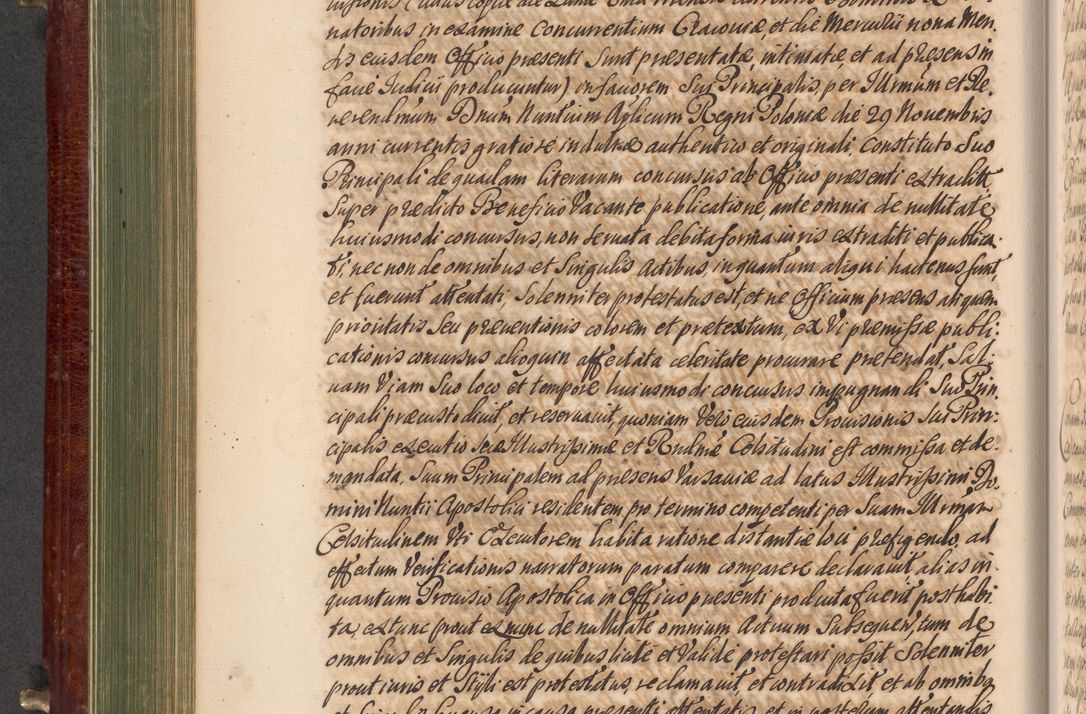 natoribus in examine Concurrentium Cracoviæ, et die Mercurii nona Men
sis eiusdem Officio præsenti sunt præsentatæ, intimatæ et ad præsens in
facie Iudicii producuntur) in favorem Sui Principalis, per Illrmum et Re,
verendmum Dnum Nuntium Aplicum Regni Poloniæ die 29 Novembris
anni currentis gratiose indultæ authentico et originali. Constituto Suo
Principali de quadam literarum concursus ab Officio præsenti extradit
Super prædicto Beneficio Vacante publicatione, ante omnia de nullitate
huiusmodi concursus, non servata debita forma iuris extraditi et publica
ti, nec non de omnibus et Singulis Actibus, inquantum aliqui hactenus sunt
et fuerunt attentati, Solenniter protestatus est, et ne Officium præsens aliquem
prioritatis seu præventionis colorem et prætextum, ex Vi præmissæ publi
cationis concursus alioquin affectata celeritate procuratæ prætendat, Sal
vam Viam Suo loco et tempore huiusmodi concursus impugnandi Suo Prin,
cipali præcustodivit, et reservavit, quoniam Vero eiusdem Provisionis Sui Prin
cipalis executio Suæ Illustrissimæ et Rndmæ Celsitudini est commissa et de,
mandata, Suum Principalem ad præsens Varsaviæ ad latus Illustrissimi Do,
mini Nuntii Apostolici residentem pro termino competenti per Suam Illrmam
Celsitudinem Uti Executorem habita ratione distantiæ loci præfigendo, ad
effectum Verificationis narratorum paratum comparere declaravit, alias in
quantum Provisio Apostolica in Officio præsenti producta fuerit posthabi
ta, ex tunc prout ex nunc de nullitate omnium Actuum Subsequentium de
omnibus et Singulis de quibus licite et Valide protestari possit Solenniter
prout iuris et Styli est protestatus, reclamavit, et contradixit et ab omnibs